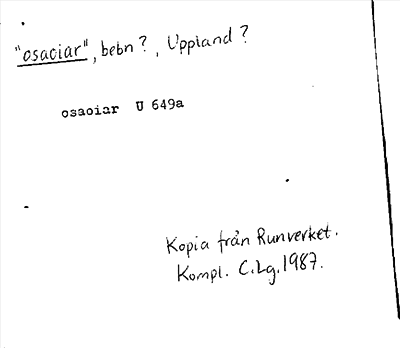 "osaciar", bebn?, Uppland?
osaoiar U 649a
Kopia från Runverket.
Kompl. C.Lg. 1987.